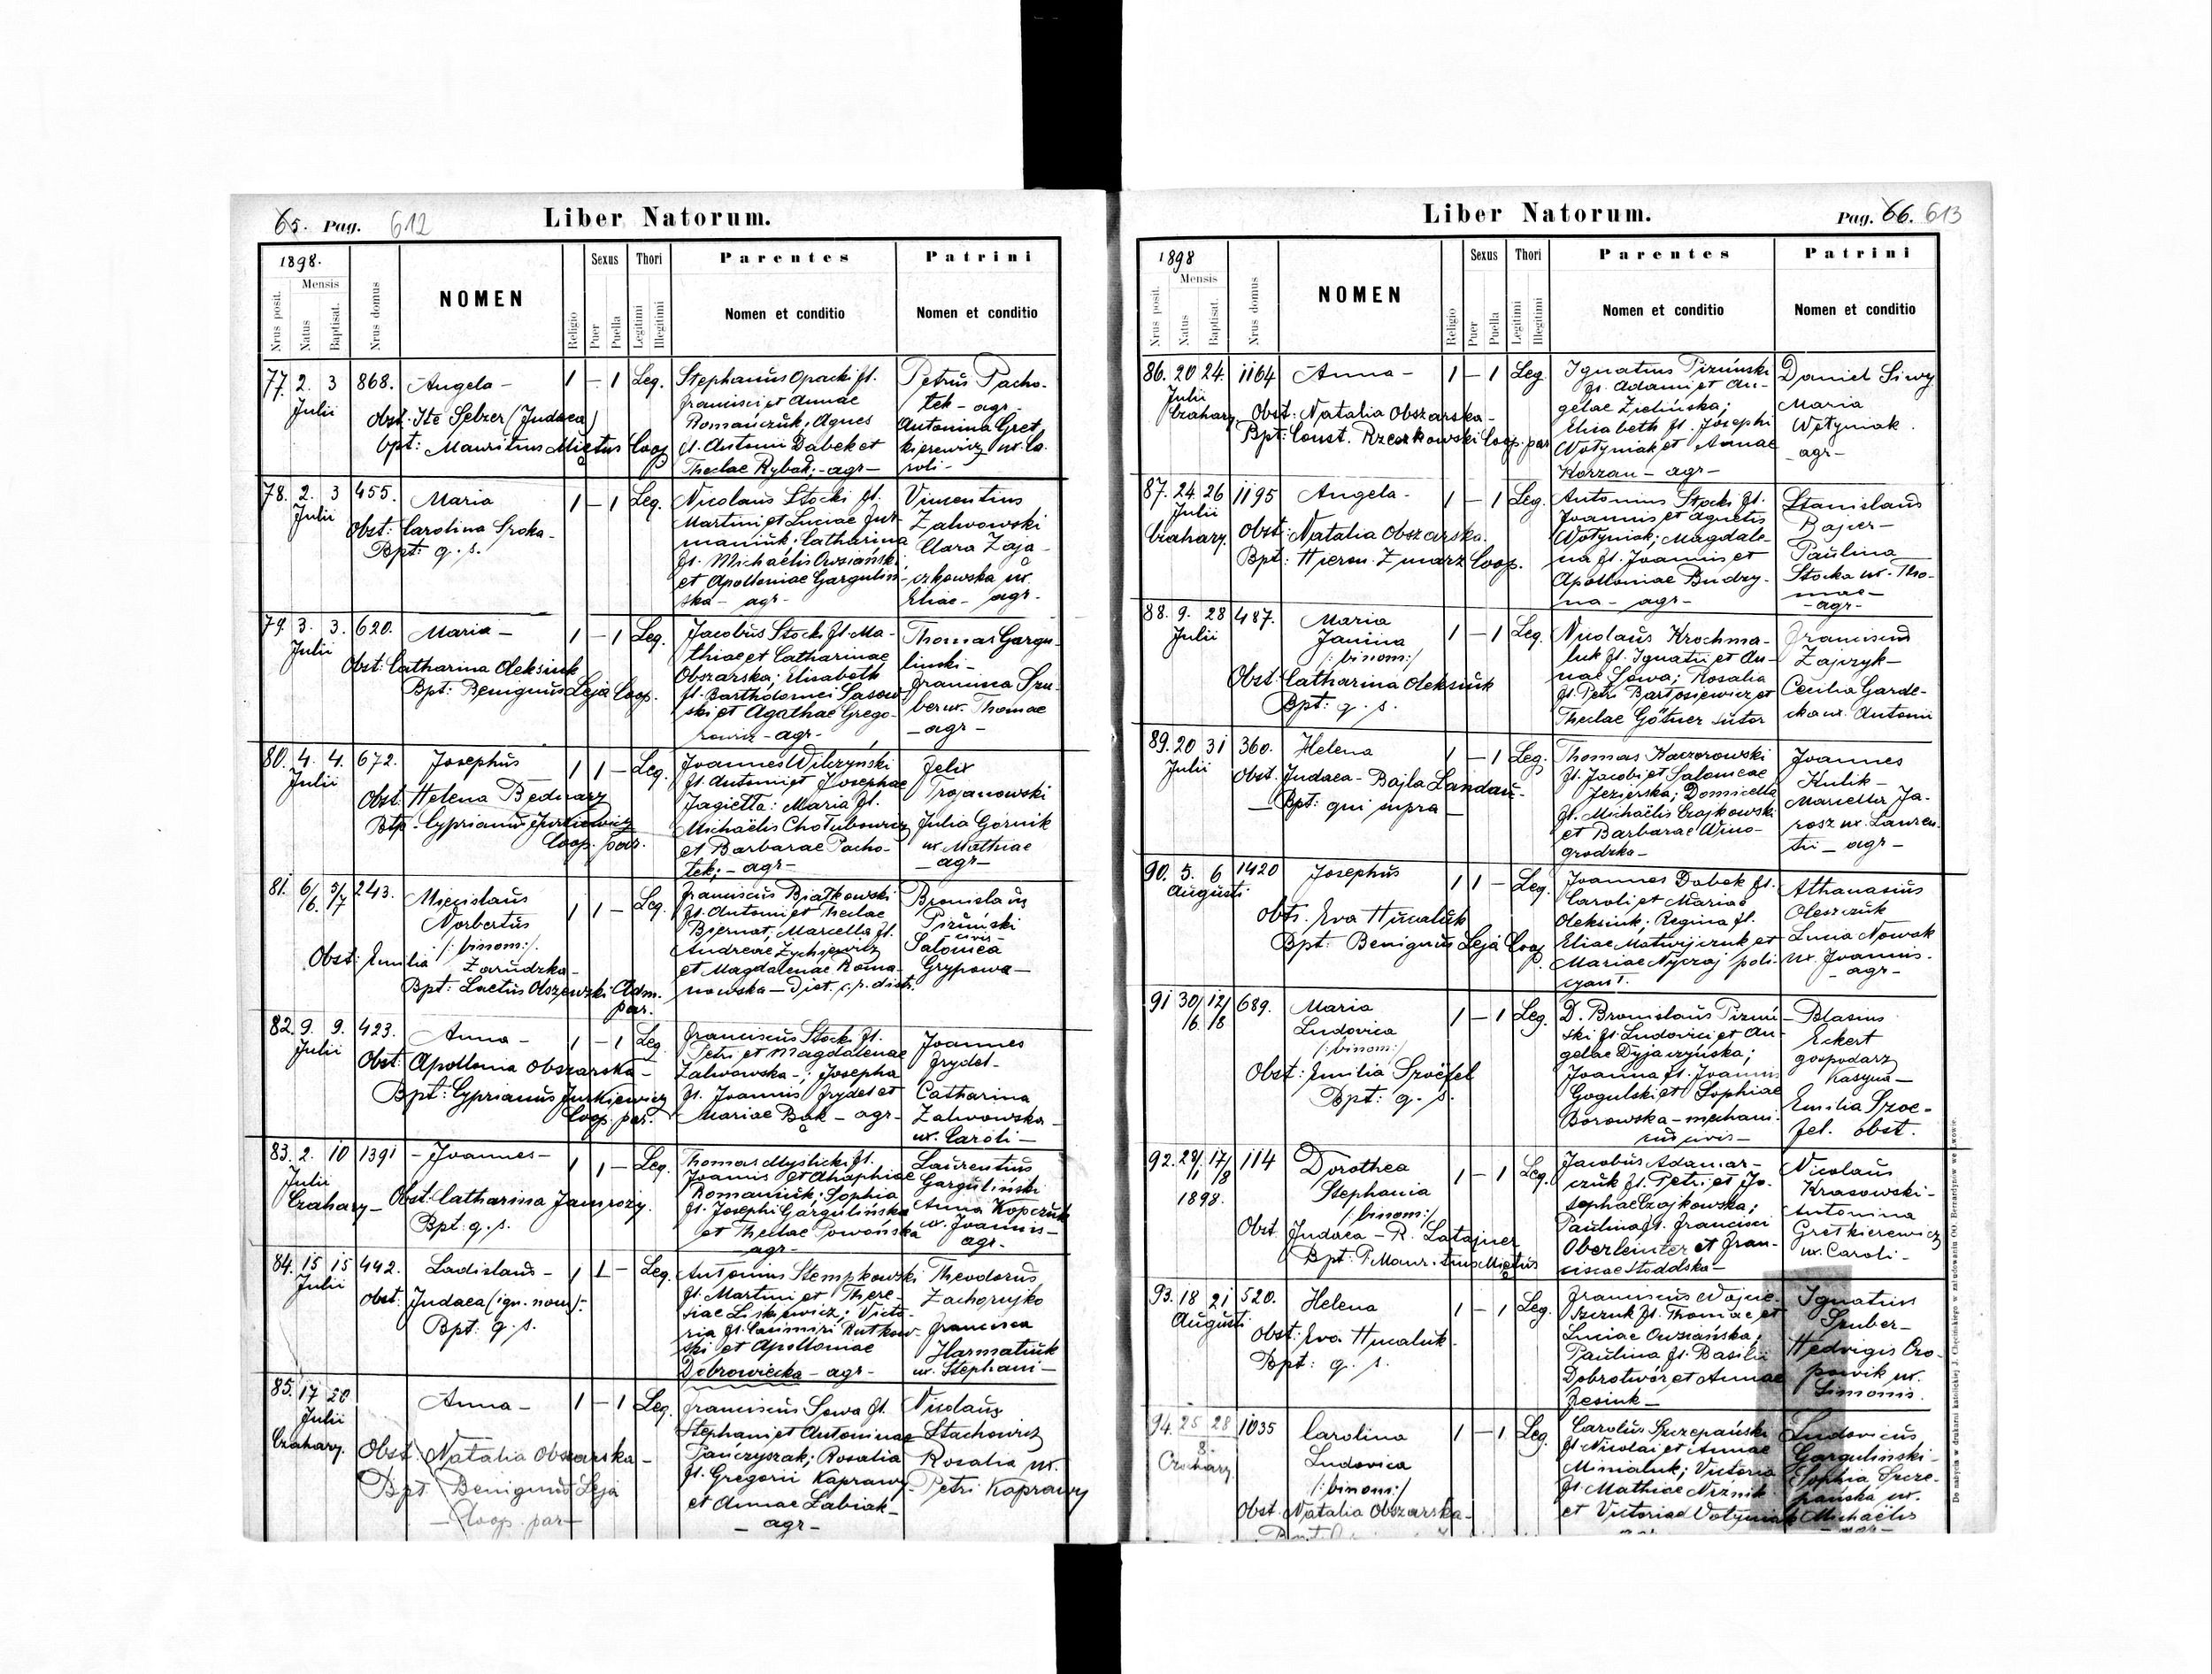 65. Pag. 612
Liber Natorum.
1898.
Mensis
Nrus posit.
Natus
Baptisat.
Nrus domus
NOMEN
Religio
Sexus
Puer
Puella
Thori
Legitimi
Illegitimi
Parentes
Nomen et conditio
Patrini
Nomen et conditio
77. 2. 3 868. Angela - 1 - 1 Leg.
Julii
Obst. Ite Selzer (Judaea)
bpt: Mauritius Miętus Coop
Stephanus Opacki fil.
Francisci et Annae
Romańczuk, Agnes
fil. Antonii Dąbek et
Theclae Rybak; - agr -
Petrus Pacho-
tek - agr.
Antonina Gret
kierewicz ux. Ca-
roli -
78. 2. 3 455. Maria 1 - 1 Leg.
Julii
Obst: Carolina Sroka -
Bpt: q. s.
Nicolaus Stocki fil.
Martini et Luciae Fur-
maniuk. Catharina
fil. Michaëlis Owsiański
et Apolloniae Gargulin-
ska - agr -
Vincentius
Zalwowski
Clara Zają-
czkowska ux.
Eliae - agr -
79. 3. 3. 620. Maria - 1 - 1 Leg.
Julii
Obst: Catharina Oleksiuk
Bpt: Benignus Leja Coop.
Jacobus Stocki fil. Ma-
thiae et Catharinae
Obszarska; Elisabeth
fil. Bartholomei Sasow-
ski et Agathae Grego-
rowicz - agr -
Thomas Gargu-
linski -
Francisca Szu-
ber ux. Thomae
- agr -
80. 4. 4. 672. Josephus 1 1 - Leg.
Julii
Obst. Helena Bednarz
Btp. Cyprianus Jurkiewicz
Coop. par.
Joannes Wilczynski
fil. Antonii et Josephae
Jagiełła: Maria fil.
Michaëlis Chołubowicz
et Barbarae Pacho-
tek; - agr -
Felix
Trojanowski
Julia Górnik
ux. Mathiae
- agr -
81. 6/6. 5/7 243. Miecislaus 1 1 - Leg.
Norbertus
/: binom:/
Obst: Emilia Zarudzka -
Bpt: Laetus Olszewski Adm.
par.
Franciscus Białkowski
fil. Antonii et Theclae
Biernat, Marcella fil.
Andreae Zychiewicz
et Magdalenae Roma-
nowska - Diet. c. r. distr.
Bronislaus
Pizuński
civis -
Salomea
Grypowa -
82. 9. 9. 423. Anna - 1 - 1 Leg
Julii
Obst: Apollonia Obszarska -
Bpt: Cyprianus Jurkiewicz
Coop. par.
Franciscus Stocki fil.
Petri et Magdalenae
Zalwowska -; Josepha
fil. Joannis Frydel et
Mariae Bąk - agr -
Joannes
Frydel -
Catharina
Zalwowska -
ux. Caroli -
83. 2. 10 1391 - Joannes - 1 1 - Leg.
Julii
Czahary -
Obst. Catharina Jamrozy.
Bpt: q. s.
Thomas Mysticki fil.
Joannis et Ahaphiae
Romaniuk; Sophia
fil. Josephi Gargulińska
et Theclae Powońska
agr -
Laurentius
Garguliński
Anna Kopczuk
ux. Joannis -
agr -
84. 15 15 442. Ladislaus - 1 1 - Leg.
Julii
Obst: Judaea (ign. nom):
Bpt: q. s.
Antonius Stempkowski
fil. Martini et There-
siae Liskiewicz; Victo-
ria fil. Casimiri Rutkow-
ski et Apolloniae
Dobrowiecka - agr -
Theodorus
Zachorujko
Francisca
Harmatiuk
ux. Stephani -
85. 17 20 Anna - 1 - 1 Leg.
Julii
Czahary.
Obst: Natalia Obszarska -
Bpt. Benignus Leja
- Coop. par -
Franciscus Sowa fil.
Stephani et Antoninae
Pańczyszak; Rosalia
fil. Gregorii Kaprawy
et Annae Labiak -
- agr -
Nicolaus
Stachowicz
Rosalia ux.
Petri Kaprawy
Liber Natorum.
Pag. 66. 613
1898
Mensis
Nrus posit.
Natus
Baptisat.
Nrus domus
NOMEN
Religio
Sexus
Puer
Puella
Thori
Legitimi
Illegitimi
Parentes
Nomen et conditio
Patrini
Nomen et conditio
86. 20 24. 1164 Anna - 1 - 1 Leg
Julii
Czahary
Obst: Natalia Obszarska -
Bpt: Const. Rzeczkowski Coop. par
Ignatius Pizuński
fil. Adami et An-
gelae Zielińska;
Elisabeth fil. Josephi
Wołyniak et Annae
Korzan - agr -
Daniel Siwy
Maria
Wołyniak.
agr -
87. 24. 26 1195 Angela - 1 - 1 Leg
Julii
Czahary.
Obst: Natalia Obszarska.
Bpt: Hieron. Zmarz Coop.
Antonius Stocki fil.
Joannis et Agnetis
Wołyniak; Magdale-
na fil. Joannis et
Apolloniae Budzy-
na - agr -
Stanislaus
Bajer -
Paulina
Stocka ux. Tho-
mae -
- agr -
88. 9. 28 487. Maria 1 - 1 Leg
Julii
Janina
/: binom:/
Obst: Catharina Oleksiuk
Bpt: q. s.
Nicolaus Krochma-
luk fil. Ignatii et An-
nae Sowa; Rosalia
fil. Petri Bartosiewicz et
Theclae Götner sutor
Franciscus
Zajczyk -
Cecilia Garde-
cka ux. Antonii
89. 20 31 360. Helena 1 - 1 Leg.
Julii
Obst. Judaea - Bajla Landau -
Bpt: qui supra -
Thomas Kaczorowski
fil. Jacobi et Salomeae
Jezierska; Domicella
fil. Michaëlis Czajkowski
et Barbarae Wino-
grodzka -
Joannes
Kulik -
Marcella Ja-
rosz ux. Lauren-
tii - agr -
90. 5. 6 1420 Josephus 1 1 - Leg.
Augusti
Obts. Eva Hucaluk
Bpt: Benignus Leja Coop
p.
Joannes Dąbek fil.
Caroli et Mariae
Oleksiuk; Regina fil.
Eliae Matwijczuk et
Mariae Nyczaj poli-
cyant.
Athanasius
Oleszczuk
Lucia Nowak
ux. Joannis.
- agr -
91 30/6. 12/8 689. Maria 1 - 1 Leg.
Ludovica
/: binom:/
Obst: Emilia Szoëfel
Bpt: q. s.
D. Bronislaus Pizuń-
ski fil. Ludovici et An-
gelae Dyjaczyńska;
Joanna fil. Joannis
Gogulski et Sophiae
Borowska - mechani-
cus civis -
Blasius
Eckert
gospodarz
Kasyna -
Emilia Szoe-
fel. obst.
92. 28/1 17/8 114 Dorothea 1 - 1 Leg.
1898. Stephania
/: binom:/
Obst. Judaea - R. Latajner
Bpt: P. Mauritius Miętus
Jacobus Adamar-
czuk fil. Petri et Jo-
sephae Czajkowska;
Paulina fil. Francisci
Oberleinter et Fran-
ciscae Stoddska -
Nicolaus
Krasowski -
Antonina
Gretkierewicz
ux. Caroli -
93. 18 21 520. Helena 1 - 1 Leg.
Augusti
Obst: Eva Hucaluk.
Bpt: q. s.
Franciscus Wojcie-
szczuk fil. Thomae et
Luciae Owsiańska;
Paulina fil. Basilii
Dobrotwór et Annae
Fesiuk -
Ignatius
Szuber -
Hedvigis Cro-
powik ux.
Simonis.
94. 25 28 1035 Carolina 1 - 1 Leg
8.
Czahary.
Ludovica
/: binom:/
Obst. Natalia Obszarska -
Carolus Szczepański
fil. Nicolai et Annae
Minialuk; Victoria
fil. Mathiae Niżnik
et Victoriae Wołyniak
Ludovicus
Garguliński -
Sophia Szcze-
pańska ux.
Michaëlis
- agr -
Do nabycia w drukarni katolickiej J. Chęcińskiego w zabudowaniu OO. Bernardynow we Lwowie.